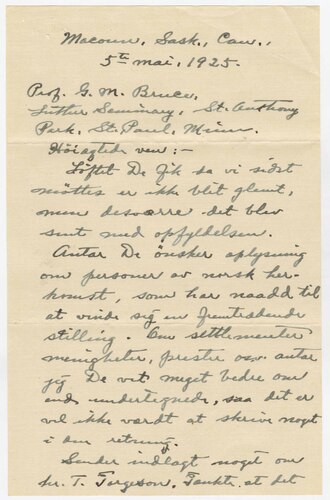 Macoun, Sask., Can.,
5te mai, 1925.
Prof. G. M. Bruce,
Luther Seminary, St. Anthony
Park, St. Paul, Minn.
Höiagtede ven:-
Löftet De fik da vi sidst
möttes er ikke blit glemt,
men desværre det blev
sent med opfyldelsen.
Antar De önsker oplysning
om personer av norsk her-
komst, som har naadd til
at vinde sig en fremtrædende
stilling. Om settlementer
menigheter, prester osv antar
jeg De vet meget bedre om
end undertegnede, saa det er
vel ikke værdt at skrive noget
i den retning.
Sender indlagt noget om
hr. T. Fergeson. Tænkte at det